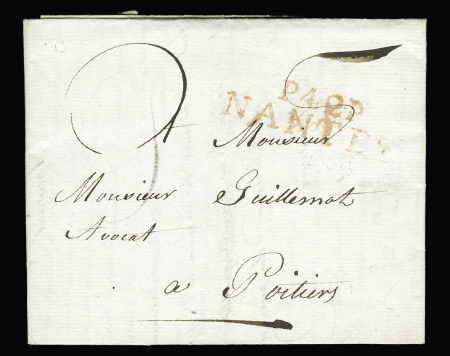 P44P
NANTES
A Monsieur
Monsieur Guillemot
Avocat
a Poitiers